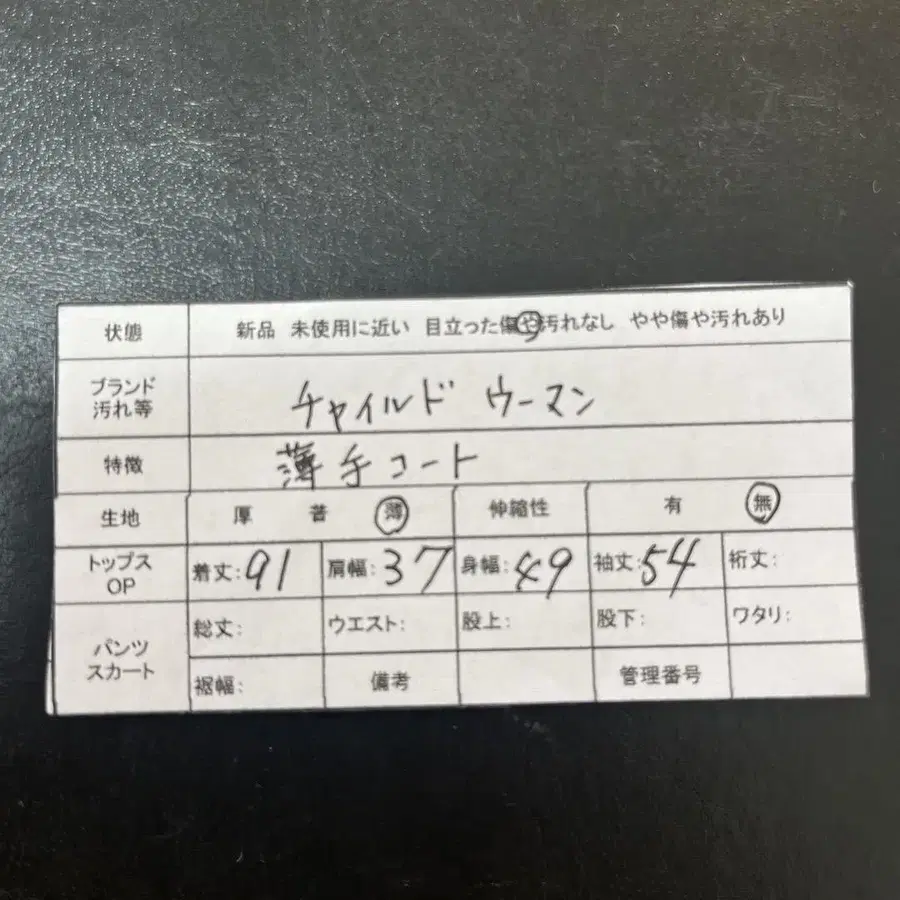 状態 新品 未使用に近い 目立った傷や汚れなし やや傷や汚れあり
ブランド
汚れ等
チャイルド ウーマン
特徴 薄手コート
生地 厚 普 薄 伸縮性 有 無
トップス
OP
着丈:91 肩幅:37 身幅:49 袖丈:54 裄丈:
パンツ
スカート
総丈: ウエスト: 股上: 股下: ワタリ:
裾幅: 備考 管理番号